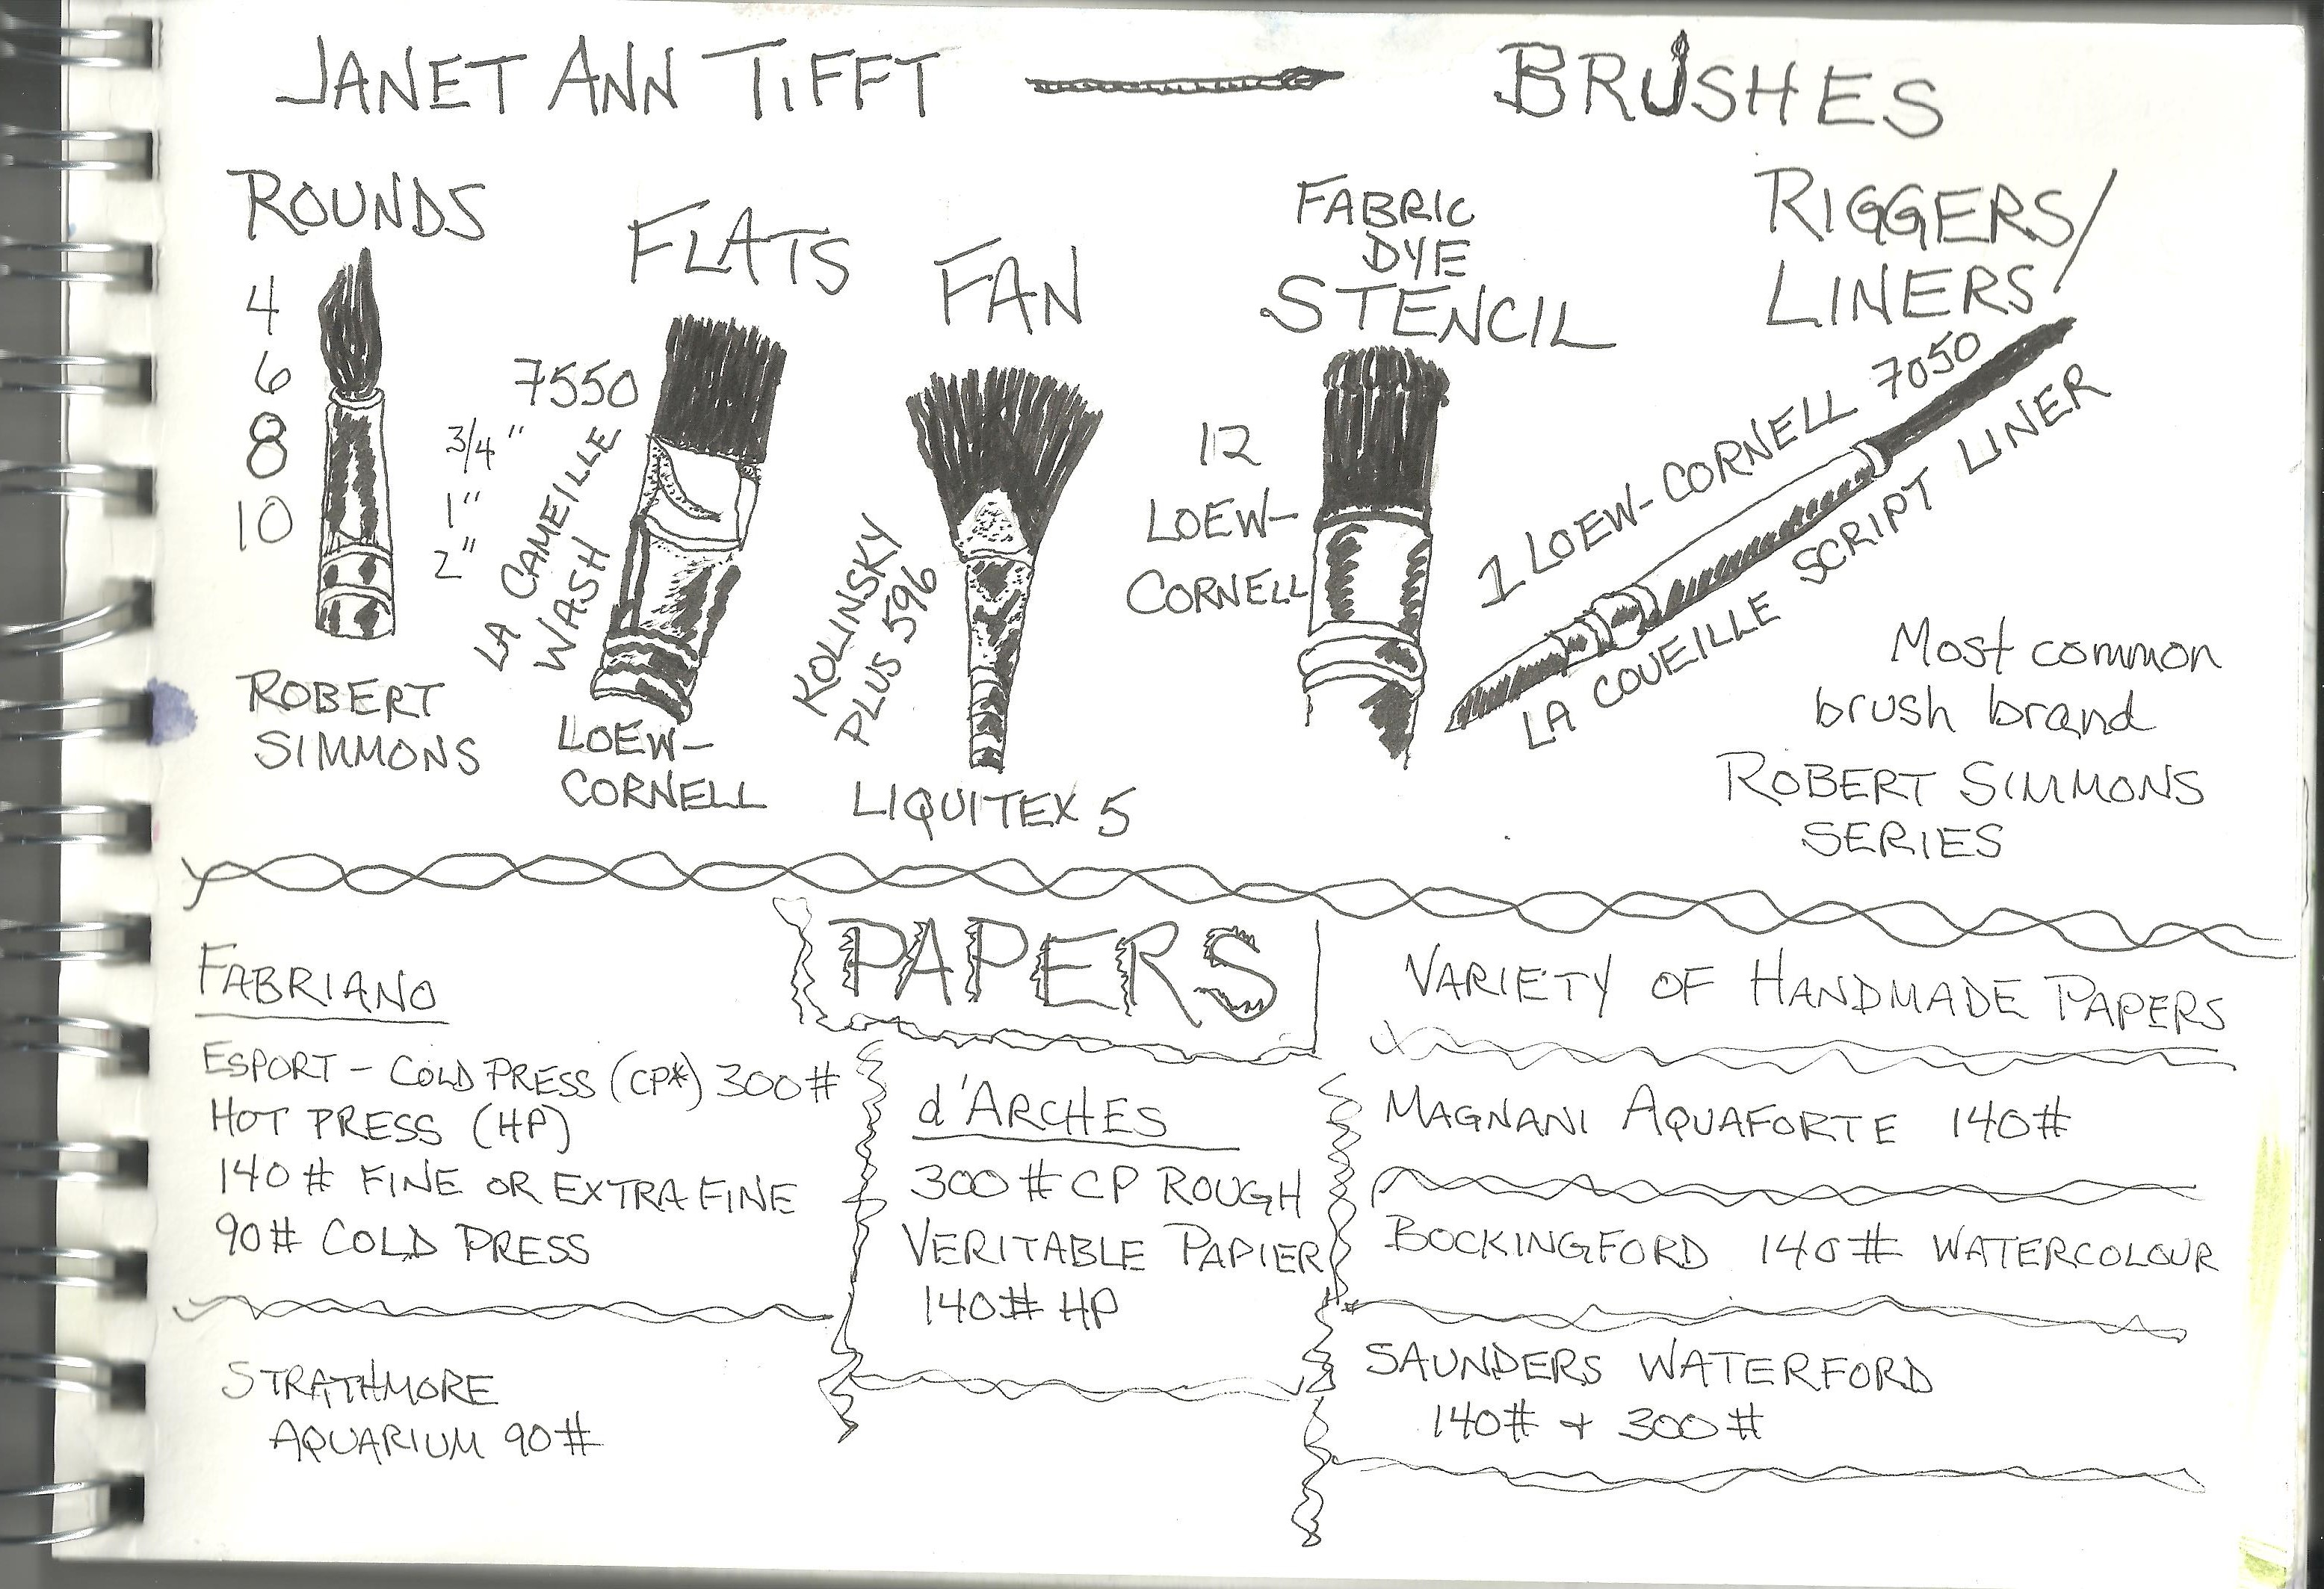 JANET ANN TIFFT
BRUSHES
ROUNDS
4
6
8
10
ROBERT
SIMMONS
FLATS
7550
3/4"
1"
2"
LA CAMEILLE
WASH
LOEW-
CORNELL
FAN
KOLINSKY
PLUS 596
LIQUITEX 5
FABRIC
DYE
STENCIL
12
LOEW-
CORNELL
RIGGERS/
LINERS
1 LOEW-CORNELL 7050
LA COUEILLE SCRIPT LINER
Most common
brush brand
ROBERT SIMMONS
SERIES
PAPERS
FABRIANO
ESPORT - COLD PRESS (CP*) 300#
HOT PRESS (HP)
140# FINE OR EXTRA FINE
90# COLD PRESS
STRATHMORE
AQUARIUM 90#
d'ARCHES
300# CP ROUGH
VERITABLE PAPIER
140# HP
VARIETY OF HANDMADE PAPERS
MAGNANI AQUAFORTE 140#
BOCKINGFORD 140# WATERCOLOUR
SAUNDERS WATERFORD
140# + 300#